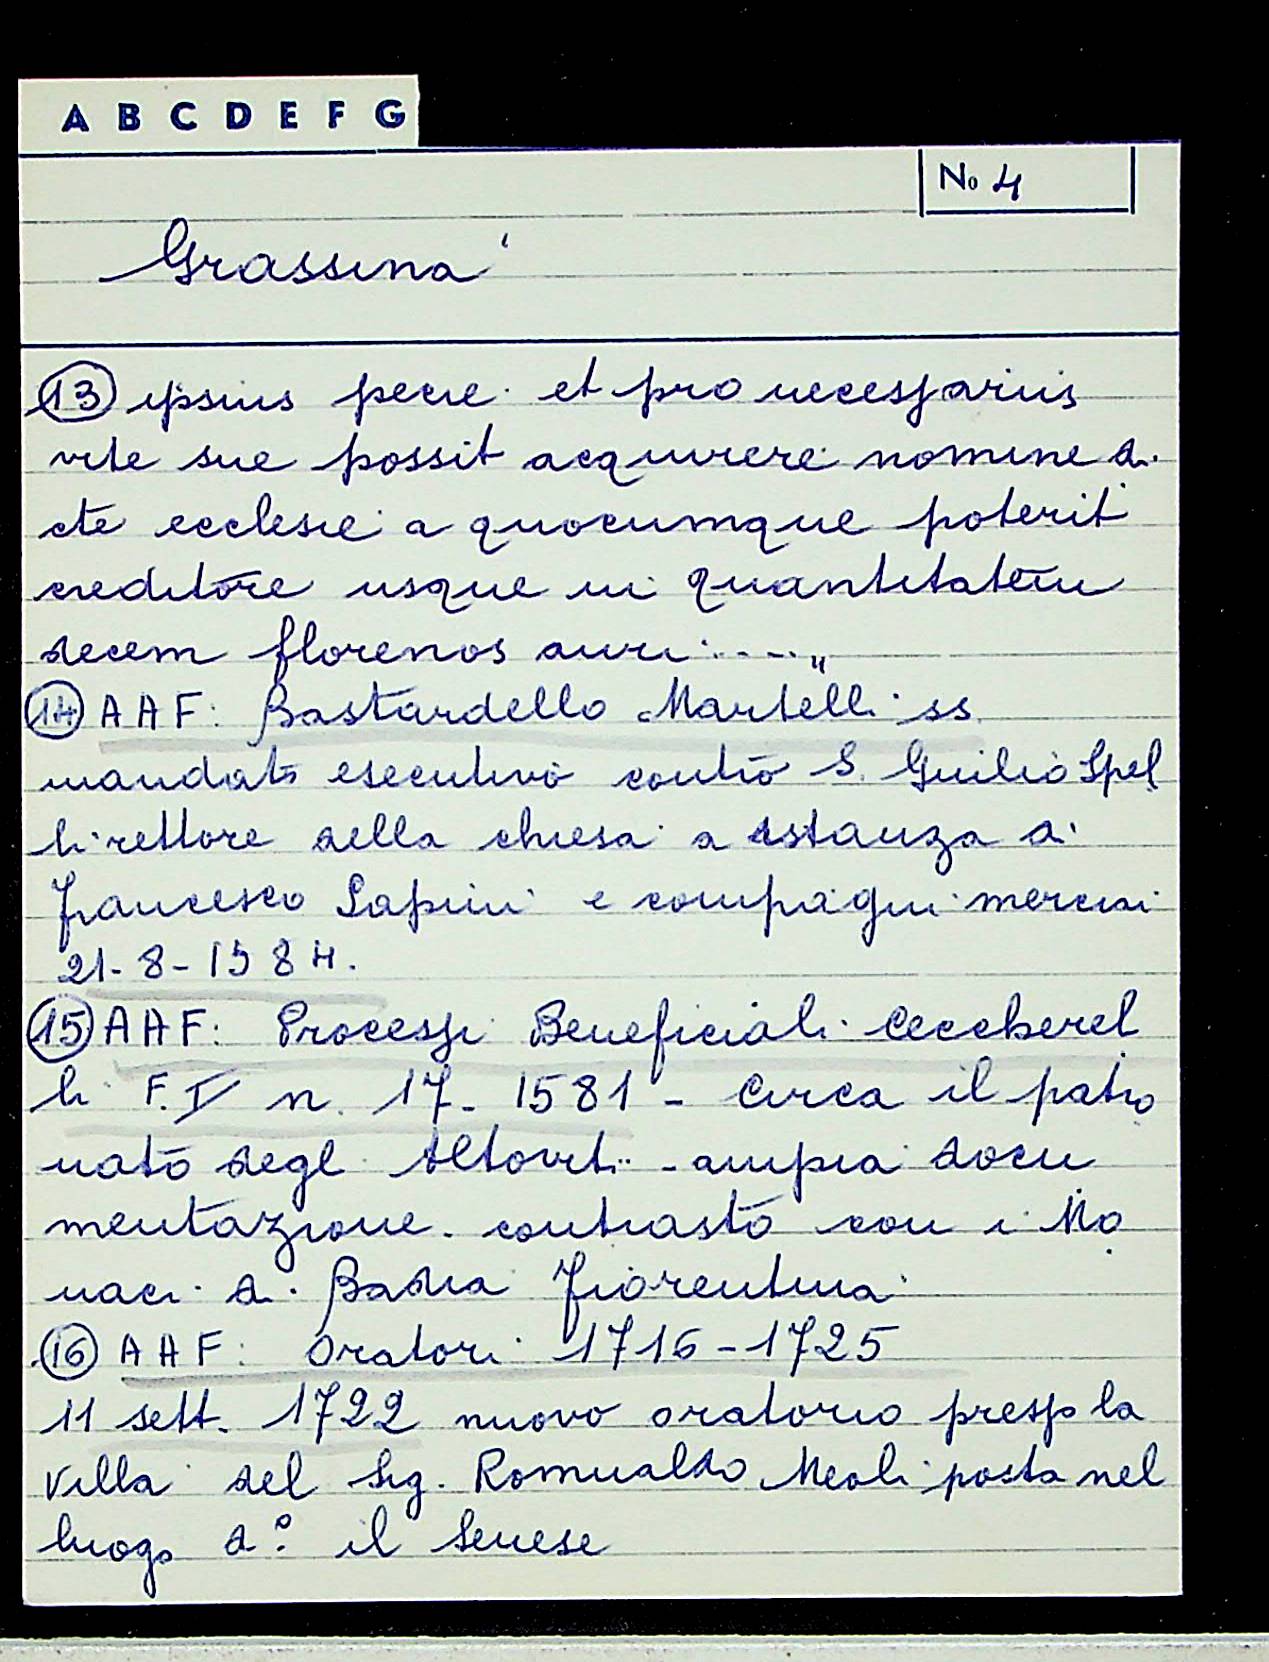 A B C D E F G
No 4
Grassina
13 ipsius pecie et pro necessariis
vite sue possit acquirere nomine di
cte ecclesie a quocumque poterit
creditore usque in quantitatem
decem florenos auri ....,,
14 AAF: Bastardello Martelli ss
mandato esecutivo contro S. Guilio Spel
li rettore della chiesa a istanza di
Francesco Lapini e compagni merciai
21-8-1584.
15 AAF: Processi Beneficiali Ceccherel
li F. I n. 17 - 1581 - Circa il patro
nato degli Altoviti - ampia docu
mentazione. contrasto con i Mo
naci di Badia Fiorentina
16 AAF: Oratori 1716-1725
11 sett. 1722 nuovo oratorio presso la
villa del Sig. Romualdo Meoli posta nel
luogo d.º il Senese